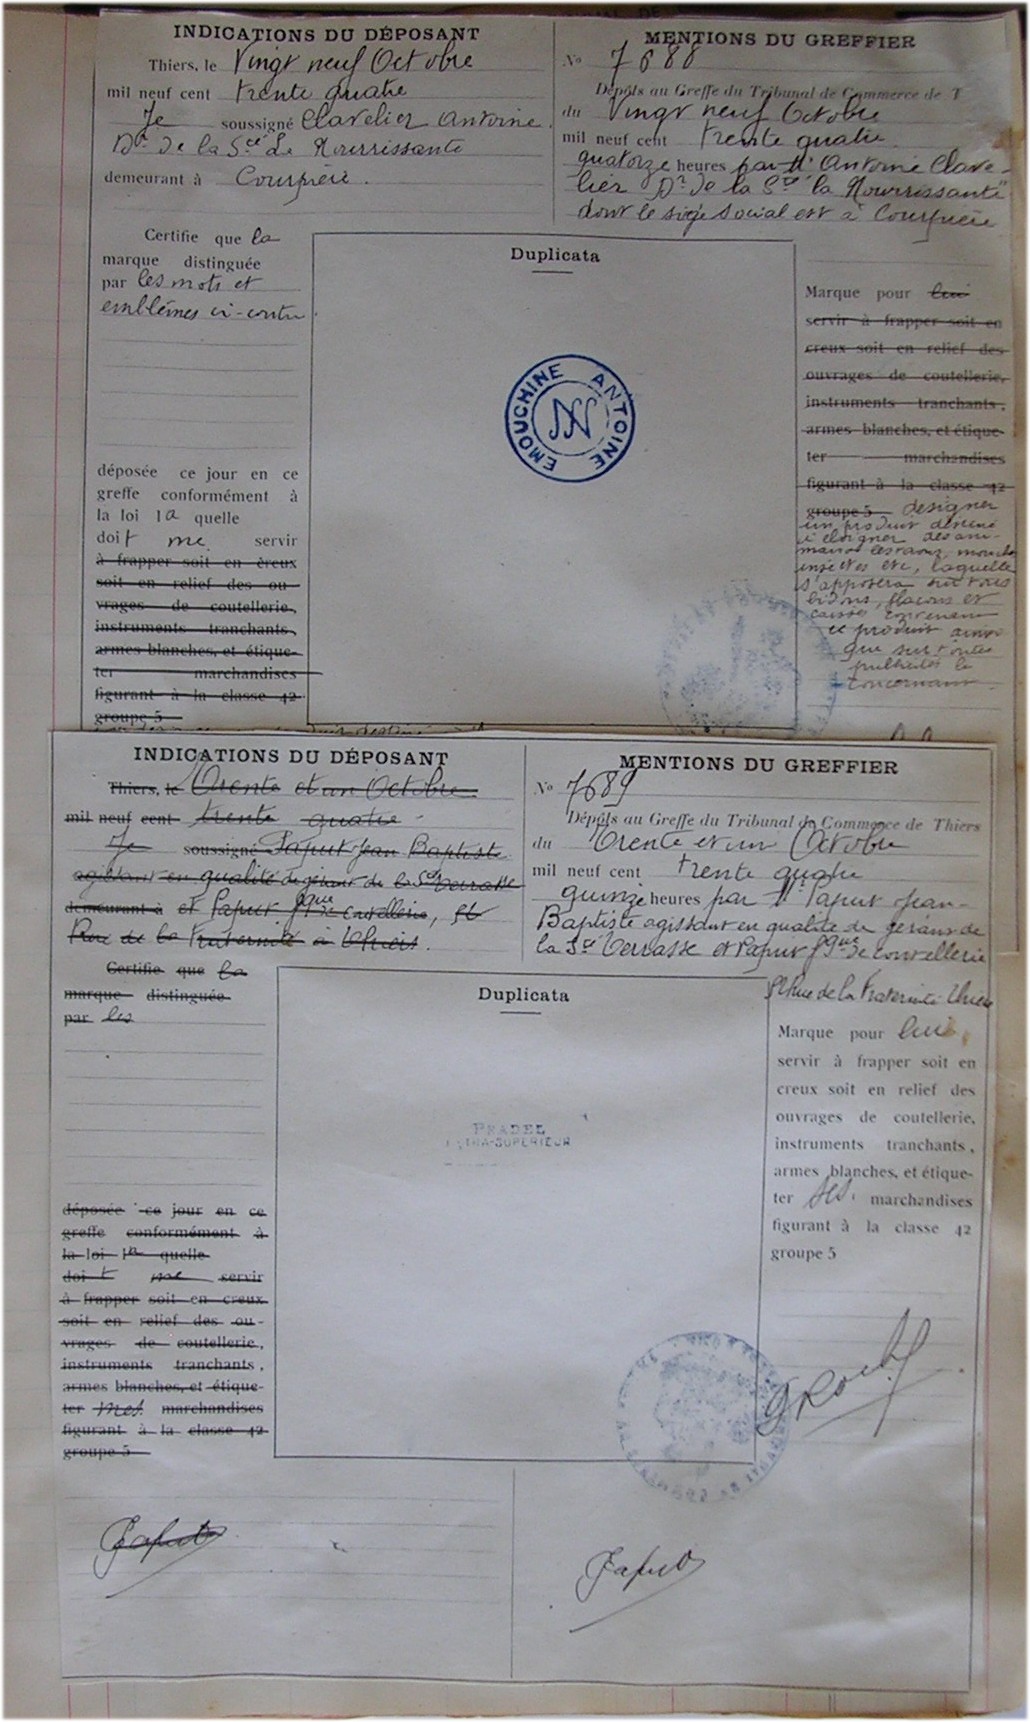 INDICATIONS DU DÉPOSANT
Thiers, le Vingt neuf Octobre
mil neuf cent trente quatre
Je soussigné Clavelier Antoine
Dr de la Sté La Nourrissante
demeurant à Courpière.
Certifie que la
marque distinguée
par les mots et
emblèmes ci-contre
déposée ce jour en ce
greffe conformément à
la loi la quelle
doit me servir
à frapper soit en creux
soit en relief des ou-
vrages de coutellerie,
instruments tranchants,
armes blanches, et étique-
ter marchandises
figurant à la classe 42
groupe 5
MENTIONS DU GREFFIER
No 7688
Dépôts au Greffe du Tribunal de Commerce de T
du Vingt neuf Octobre
mil neuf cent trente quatre
quatorze heures par Mr Antoine Clave-
lier Dr de la Sté "la Nourrissante"
dont le siège social est à Courpière
Duplicata
EMOUCHINE ANTOINE
Marque pour lui
servir à frapper soit en
creux soit en relief des
ouvrages de coutellerie,
instruments tranchants,
armes blanches, et étique-
ter marchandises
figurant à la classe 42
groupe 5 designer
un produit destiné
à éloigner des ani-
maux les taons, mouches
insectes etc, laquelle
s'apposera sur tous
bidons, flacons et
caisses contenant
ce produit ainsi
que sur toutes
publicités le
concernant.
INDICATIONS DU DÉPOSANT
Thiers, le Trente et un Octobre
mil neuf cent trente quatre
Je soussigné Paput Jean Baptiste
agissant en qualité de gérant de la Sté Verrasse
demeurant à et Paput fque de Coutellerie, 52
Rue de la Fraternité à Thiers.
Certifie que la
marque distinguée
par les
déposée ce jour en ce
greffe conformément à
la loi la quelle
doit me servir
à frapper soit en creux
soit en relief des ou-
vrages de coutellerie,
instruments tranchants,
armes blanches, et étique-
ter mes marchandises
figurant à la classe 42
groupe 5
Paput
MENTIONS DU GREFFIER
No 7689
Dépôts au Greffe du Tribunal de Commerce de Thiers
du Trente et un Octobre
mil neuf cent trente quatre
quinze heures par Mr Paput Jean-
Baptiste agissant en qualité de gérant de
la Sté Verrasse et Paput fque de coutellerie
Rue de la Fraternité Thiers
Duplicata
PRADEL
EXTRA-SUPERIEUR
Marque pour lui
servir à frapper soit en
creux soit en relief des
ouvrages de coutellerie,
instruments tranchants,
armes blanches, et étique-
ter ses marchandises
figurant à la classe 42
groupe 5
Paput